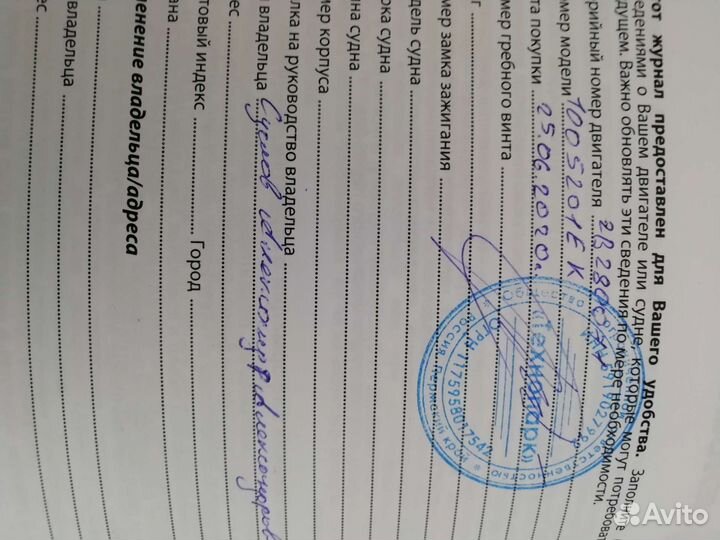 тот журнал предоставлен для Вашего удобства. Заполните
ведениями о Вашем двигателе или судне, которые могут потребоват
дущем. Важно обновлять эти сведения по мере необходимости.
рийный номер двигателя
мер модели 100S201EK
та покупки 25.06.2020г.
мер гребного винта
г
мер замка зажигания
дель судна
рка судна
ина судна
мер корпуса
лка на руководство владельца
владельца Суслов Александр Александров
ес
товый индекс Город
ана
менение владельца/адреса
владельца
ес
«Технопарк»
ОГРН 1175958017542
Россия Пермский край
Avito